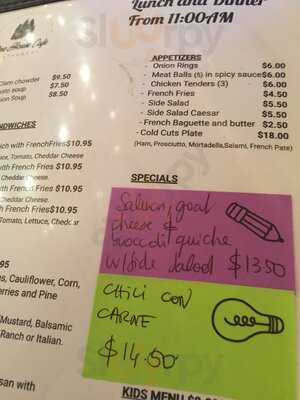 Lunch and Dinner
From 11:00AM
Clam chowder $9.50
soup $7.50
Soup $8.50
APPETIZERS
- Onion Rings $6.00
- Meat Balls (5) in spicy sauce $6.00
- Chicken Tenders (3) - $6.00
- French Fries $4.50
- Side Salad $5.50
- Side Salad Caesar $5.50
- French Baguette and butter $2.50
- Cold Cuts Plate $18.00
(Ham, Prosciutto, Mortadella, Salami, French Pate)
with FrenchFries $10.95
Tomato, Cheddar Cheese
with French Fries $10.95
Cheddar Cheese
with French Fries $10.95
Cheddar Cheese.
French Fries $10.95
Tomato, Lettuce, Cheddar
SPECIALS
Salmon, goat
cheese &
broccoli quiche
w/side salad $13.50
CHILI CON
CARNE
$14.50
.95
Cauliflower, Corn,
and Pine
Mustard, Balsamic
Ranch or Italian.
with
KIDS MENU